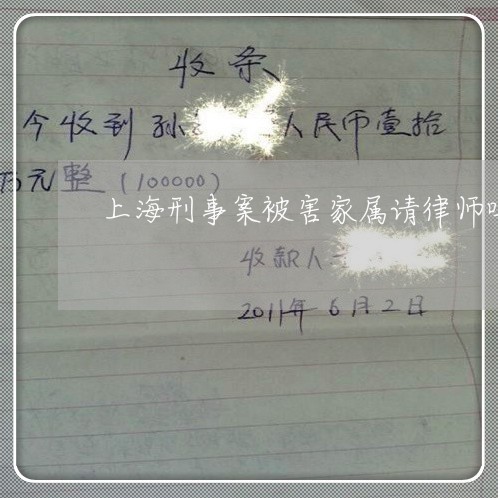 收条
今收到孙 人民币壹拾
万元整(100000)
上海刑事案被害家属请律师
收款人
2011年6月2日